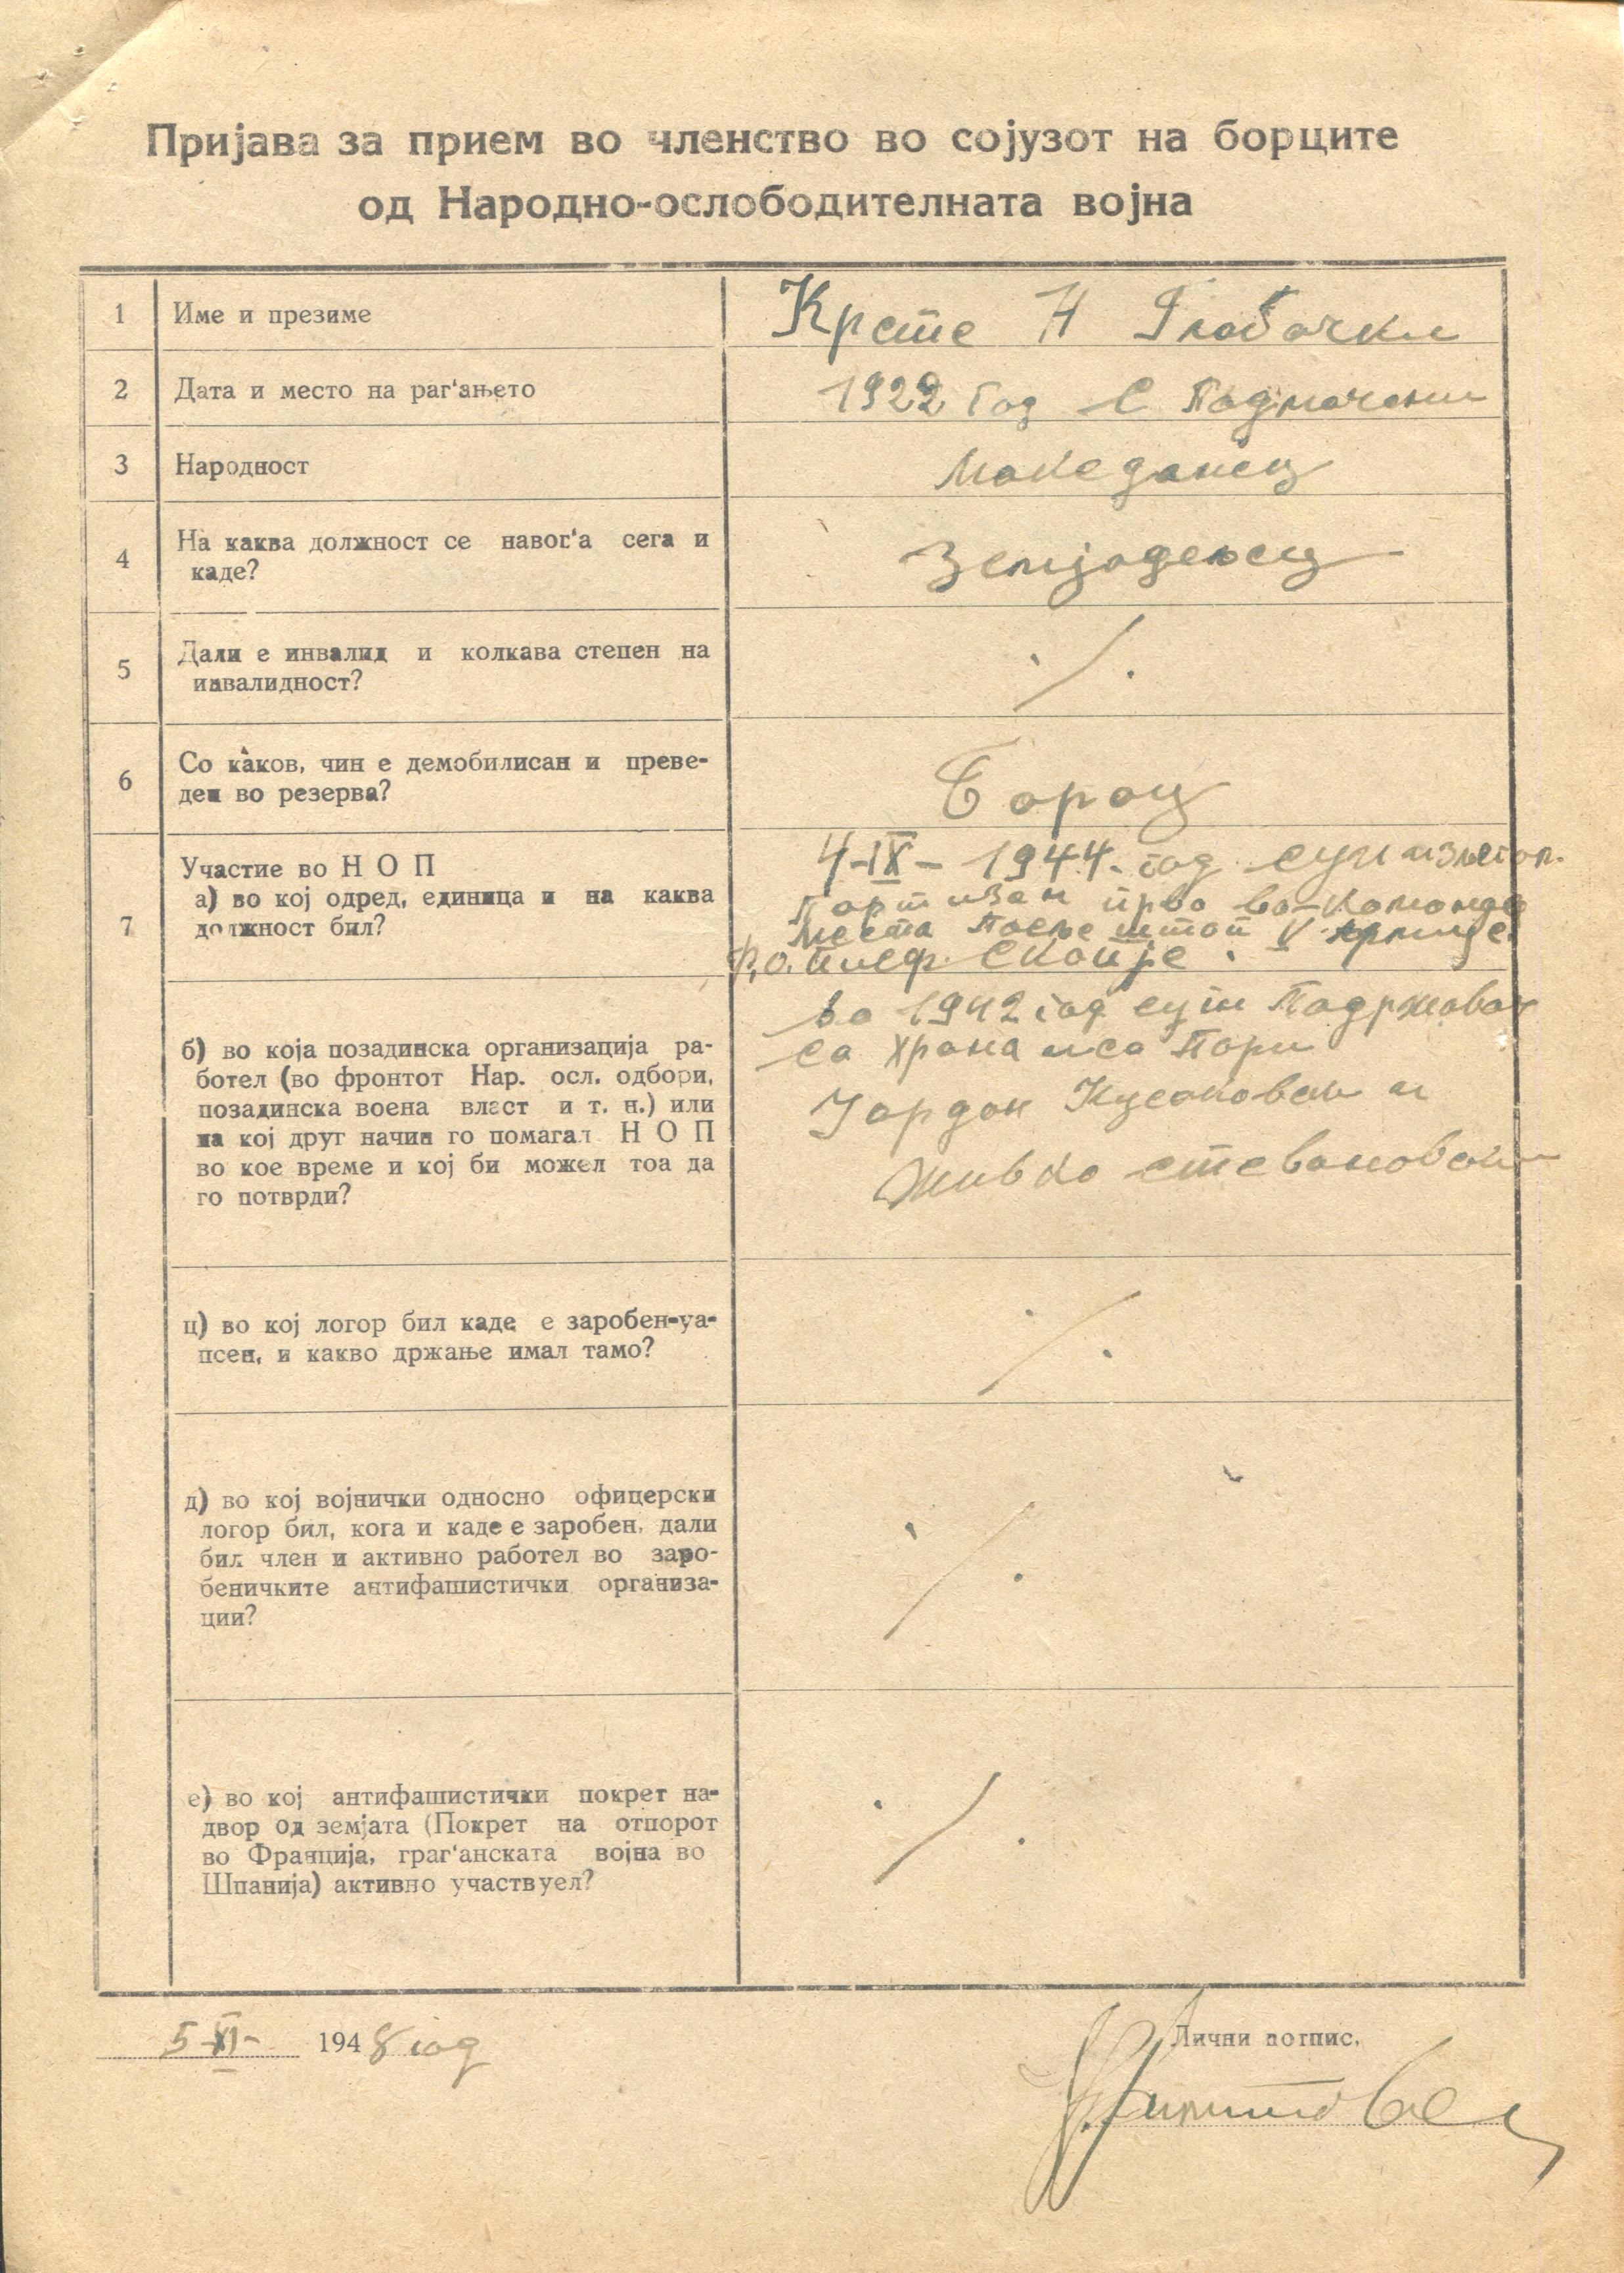 Пријава за прием во членство во сојузот на борците
од Народно-ослободителната војна
1 Име и презиме Крсте Н Глобочки
2 Дата и место на раг'ањето 1922 год С Подмочани
3 Народност Македонец
4 На каква должност се навог'а сега и
каде? Земјоделец
5 Дали е инвалид и колкава степен на
инвалидност? ·/.
6 Со каков, чин е демобилисан и преве-
ден во резерва? Борац
7 Участие во Н О П
а) во кој одред, единица и на каква
должност бил?
4-IX- 1944. год сум
Партизан прво во Команда
Места После штаб V
Скопје.
б) во која позадинска организација ра-
ботел (во фронтот Нар. осл. одбори,
позадинска воена власт и т. н.) или
на кој друг начин го помагал Н О П
во кое време и кој би можел тоа да
го потврди?
во 1942 год сум Подржовал
са храна и са Пори
Јордан Кусаковски и
Живко стевановски
ц) во кој логор бил каде е заробен-уа-
псен, и какво држање имал тамо? ·/.
д) во кој војнички односно офицерски
логор бил, кога и каде е заробен, дали
бил член и активно работел во заро-
беничките антифашистички организа-
ции? ·/.
е) во кој антифашистички покрет на-
двор од земјата (Покрет на отпорот
во Франција, граг'анската војна во
Шпанија) активно участвуел? ·/.
5-XI- 1948 год
Лични потпис,